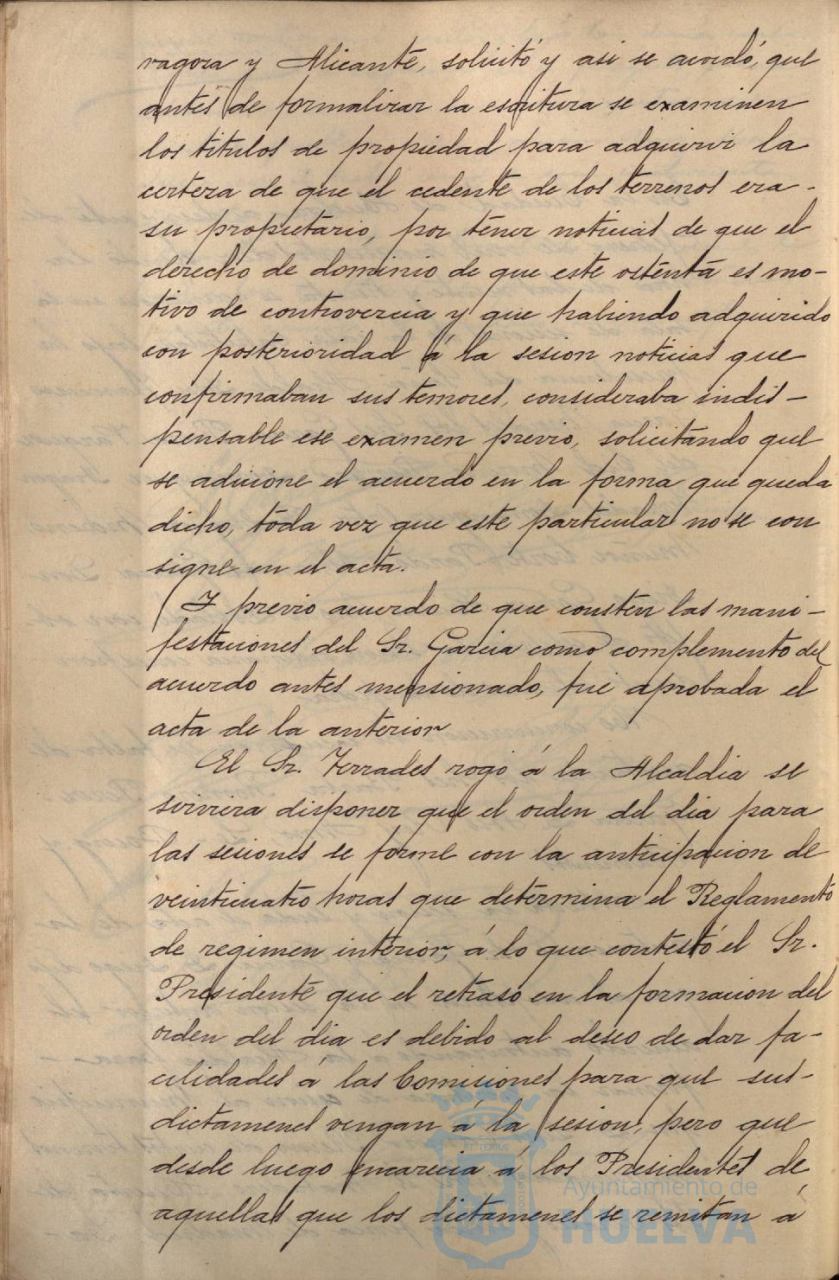 ragoza y Alicante, solicitó y asi se acordó, que
antes de formalizar la escritura se examinen
los titulos de propiedad para adquirir la
certeza de que el cedente de los terrenos era-
su propietario, por tener noticias de que el
derecho de dominio de que este ostenta es mo-
tivo de controversia y que habiendo adquirido
con posterioridad á la sesion noticias que
confirmaban sus temores, consideraba indis-
pensable ese examen previo, solicitando que
se adicione el acuerdo en la forma que queda
dicho, toda vez que este particular no se con
signe en el acta.
Y previo acuerdo de que consten las mani-
festaciones del Sr. Garcia como complemento del
acuerdo antes mensionado, fué aprobada el
acta de la anterior
El Sr. Terrades rogó á la Alcaldia se
sirviera disponer que el orden del dia para
las sesiones se forme con la anticipacion de
veinticuatro horas que determina el Reglamento
de regimen interior, á lo que contestó el Sr.
Presidente que el retraso en la formacion del
orden del dia es debido al deseo de dar fa-
cilidades á las Comisiones para que sus-
dictamenes vengan á la sesion, pero que
desde luego encarecia á los Presidentes de
aquellas que los dictamenes se remitan á
Ayuntamiento de
HUELVA